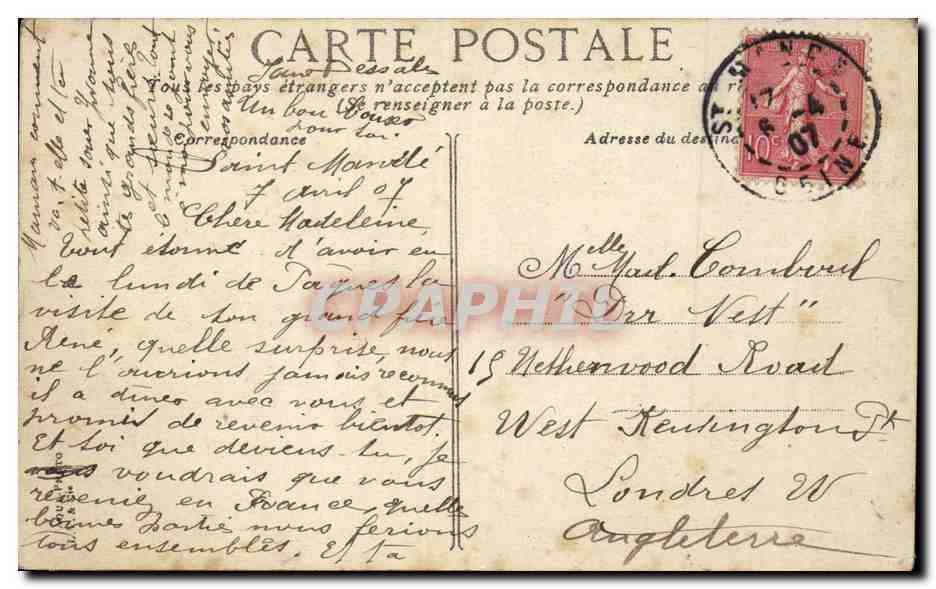 CARTE POSTALE
Tous les pays étrangers n'acceptent pas la correspondance au
(Se renseigner à la poste.)
Correspondance
Adresse du destina
Saint Mandé
7 avril 07
Chère Madeleine,
Tout étonné d'avoir eu
le lundi de Pâques la
visite de ton grand frère
René, quelle surprise, nous
ne l'aurions jamais reconnus
il a diner avec vous et
promis de revenir bientot.
Et toi que deviens-tu, je
voudrais que vous
reveniez en France, quelle
bonnes partie nous ferions
tous ensembles. Et ta
Maman comment
va-t-elle et ta
petite soeur Yvonne
ainsi que tous
tes grands frères
et
le monde sont
envoyer
nos amitiés
Un bon
pour toi.
Melle Mad.
"Der Nest"
15 Netherwood Road
West Kensington Pk
Londres W
Angleterre
10c
ST MANDE
6 - 4
07
SEINE
CPAPHIL